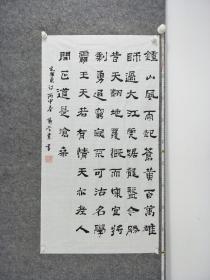 鐘山風雨起蒼黄百萬雄
師過大江虎踞龍盤今勝
昔天翻地覆慨而慷宜將
剩勇追窮寇不可沽名學
霸王天若有情天亦老人
間正道是滄桑
丙申春 書